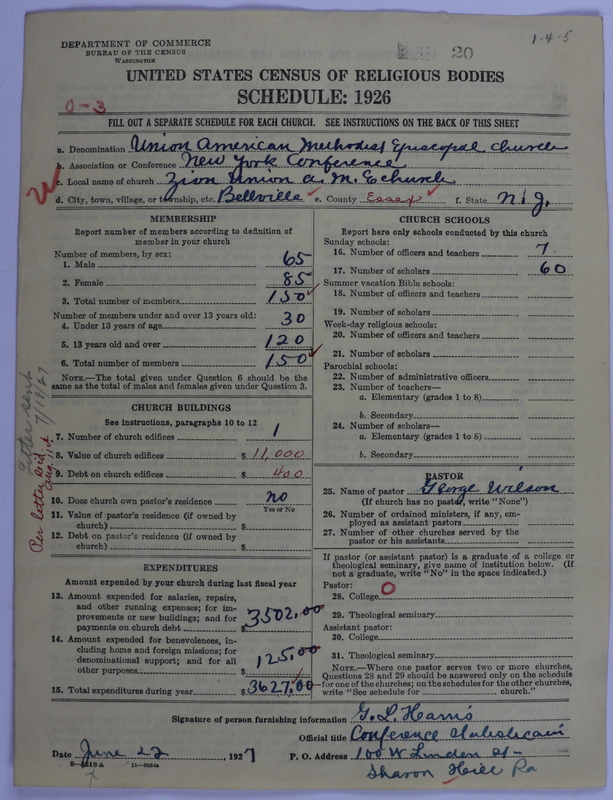 DEPARTMENT OF COMMERCE
BUREAU OF THE CENSUS
WASHINGTON
20
1-4-5
UNITED STATES CENSUS OF RELIGIOUS BODIES
SCHEDULE: 1926
0-3
FILL OUT A SEPARATE SCHEDULE FOR EACH CHURCH. SEE INSTRUCTIONS ON THE BACK OF THIS SHEET
a. Denomination Union American Methodist Episcopal Church
b. Association or Conference New York Conference
c. Local name of church Zion Union A. M. E church
d. City, town, village, or township, etc. Bellville e. County Essex f. State N. J.
MEMBERSHIP
Report number of members according to definition of member in your church
Number of members, by sex:
1. Male 65
2. Female 85
3. Total number of members 150
Number of members under and over 13 years old:
4. Under 13 years of age 30
5. 13 years old and over 120
6. Total number of members 150
NOTE.—The total given under Question 6 should be the same as the total of males and females given under Question 3.
CHURCH BUILDINGS
See instructions, paragraphs 10 to 12
7. Number of church edifices 1
8. Value of church edifices $ 11,000
9. Debt on church edifices $ 400
10. Does church own pastor's residence no
Yes or No
11. Value of pastor's residence (if owned by church) $
12. Debt on pastor's residence (if owned by church) $
Letter sent 7/19/27
Per letter
EXPENDITURES
Amount expended by your church during last fiscal year
13. Amount expended for salaries, repairs, and other running expenses; for improvements or new buildings; and for payments on church debt $ 3502.00
14. Amount expended for benevolences, including home and foreign missions; for denominational support; and for all other purposes $ 125.00
15. Total expenditures during year $ 3627.00
CHURCH SCHOOLS
Report here only schools conducted by this church
Sunday schools:
16. Number of officers and teachers 7
17. Number of scholars 60
Summer vacation Bible schools:
18. Number of officers and teachers
19. Number of scholars
Week-day religious schools:
20. Number of officers and teachers
21. Number of scholars
Parochial schools:
22. Number of administrative officers
23. Number of teachers—
a. Elementary (grades 1 to 8)
b. Secondary
24. Number of scholars—
a. Elementary (grades 1 to 8)
b. Secondary
PASTOR
25. Name of pastor George Wilson
(If church has no pastor, write "None")
26. Number of ordained ministers, if any, employed as assistant pastors
27. Number of other churches served by the pastor or his assistants
If pastor (or assistant pastor) is a graduate of a college or theological seminary, give name of institution below. (If not a graduate, write "No" in the space indicated.)
Pastor:
28. College 0
29. Theological seminary
Assistant pastor:
30. College
31. Theological seminary
NOTE.—Where one pastor serves two or more churches, Questions 28 and 29 should be answered only on the schedule for one of the churches; on the schedules for the other churches, write "See schedule for church."
Signature of person furnishing information G. L. Harris
Official title Conference
Date June 22, 1927 P. O. Address 100 W Linden St-
8-5518a 11-9954a Sharon Hill Pa